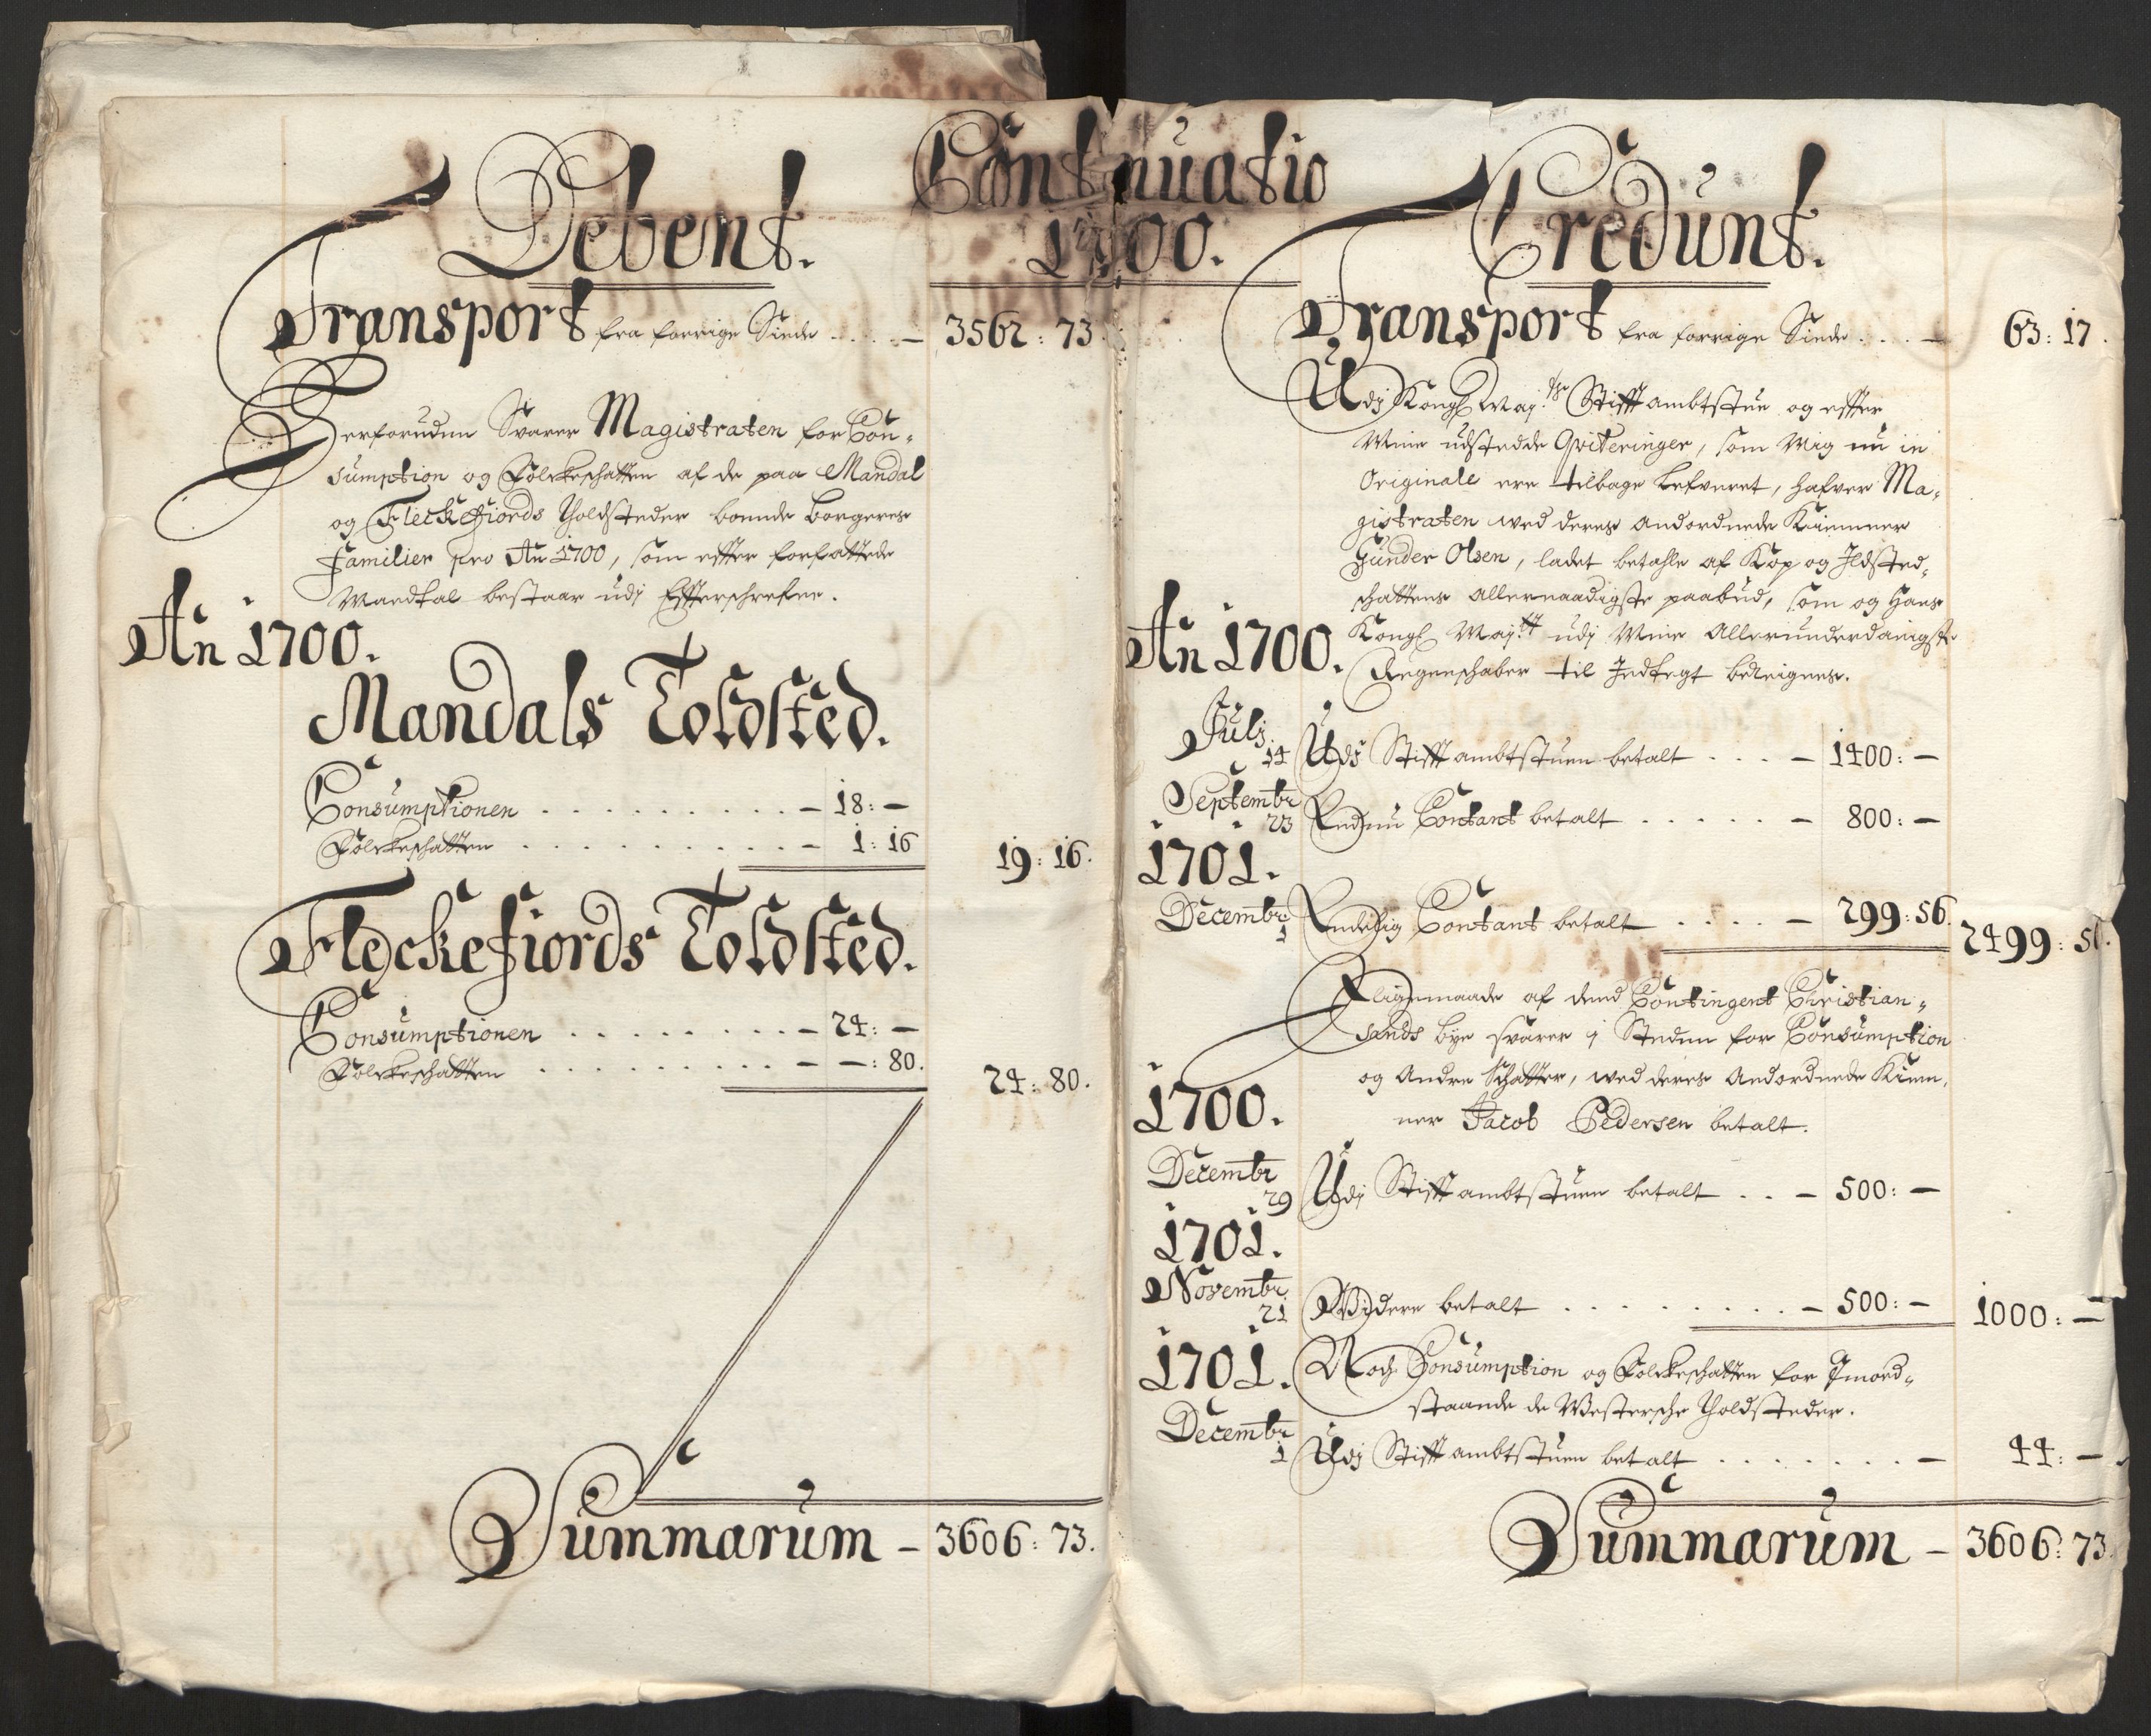 Continuatio
1700.
Debent.
Transport fra forrige Siide . . . . — 3562: 73.
Derforuden Svarer Magistraten for Con-
sumption og Folckeschatten af de paa Mandal
og Fleckefiords Tholdsteder boende Borgeres
Familier pro An 1700, som efter forfattede
Mandtal bestaar udj Efterschrefne.
An 1700.
Mandals Toldsted.
Consumptionen . . . . . . . . . — 18: —
Folckeschatten . . . . . . . . . . — 1: 16
19: 16.
Fleckefiords Toldsted.
Consumptionen . . . . . . . . — 24: —
Folckeschatten . . . . . . . . . . — —: 80.
24: 80.
Summarum — 3606: 73.
Credunt.
Transport fra forrige Siide . . . — 63: 17.
Udj Kongl Maj:ts Stifftambtstue og efter
Mine udstedde Qviteringer, som Mig nu in
Originale ere tilbage lefveret, hafver Ma-
gistraten med deres andordnede Kiemner
Gunder Olsen, ladet betahle af Kop og Ildsted-
schattens allernaadigste paabud, som og Hans
An 1700. Kongl Maj:tt udj Mine Allerunderdanigste
Regenschaber til Indtegt bereignes.
Julj
14 Udj Stifftambtstuen betalt . . . . — 1400: —
Septembr
23 Endnu Contant betalt . . . . . . — 800: —
1701.
Decembr
1 Endelig Contant betalt . . . . . — 299: 56.
2499: 56.
Ligemaade af dend Contingent Christian-
sands bye svarer i Steden for Consumption
og Andre Schatter, med deres Andordnede Kiem-
1700. ner Jacob Pedersen betalt.
Decembr
29 Udj Stifftambtstuen betalt . . — 500: —
1701.
Novembr
21 Widere betalt . . . . . . . . . — 500: — 1000: —
1701. Noch Consumption og Folckeschatten for Imod-
staande de Westersche Tholdsteder.
Decembr
1 Udj Stifftambtstuen betalt . . . . . . . — 44: —
Summarum — 3606: 73.